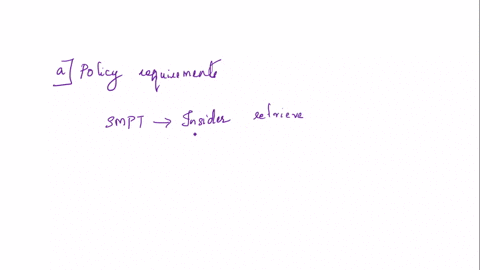 a] Policy requirements
SMPT → Insider retrieve